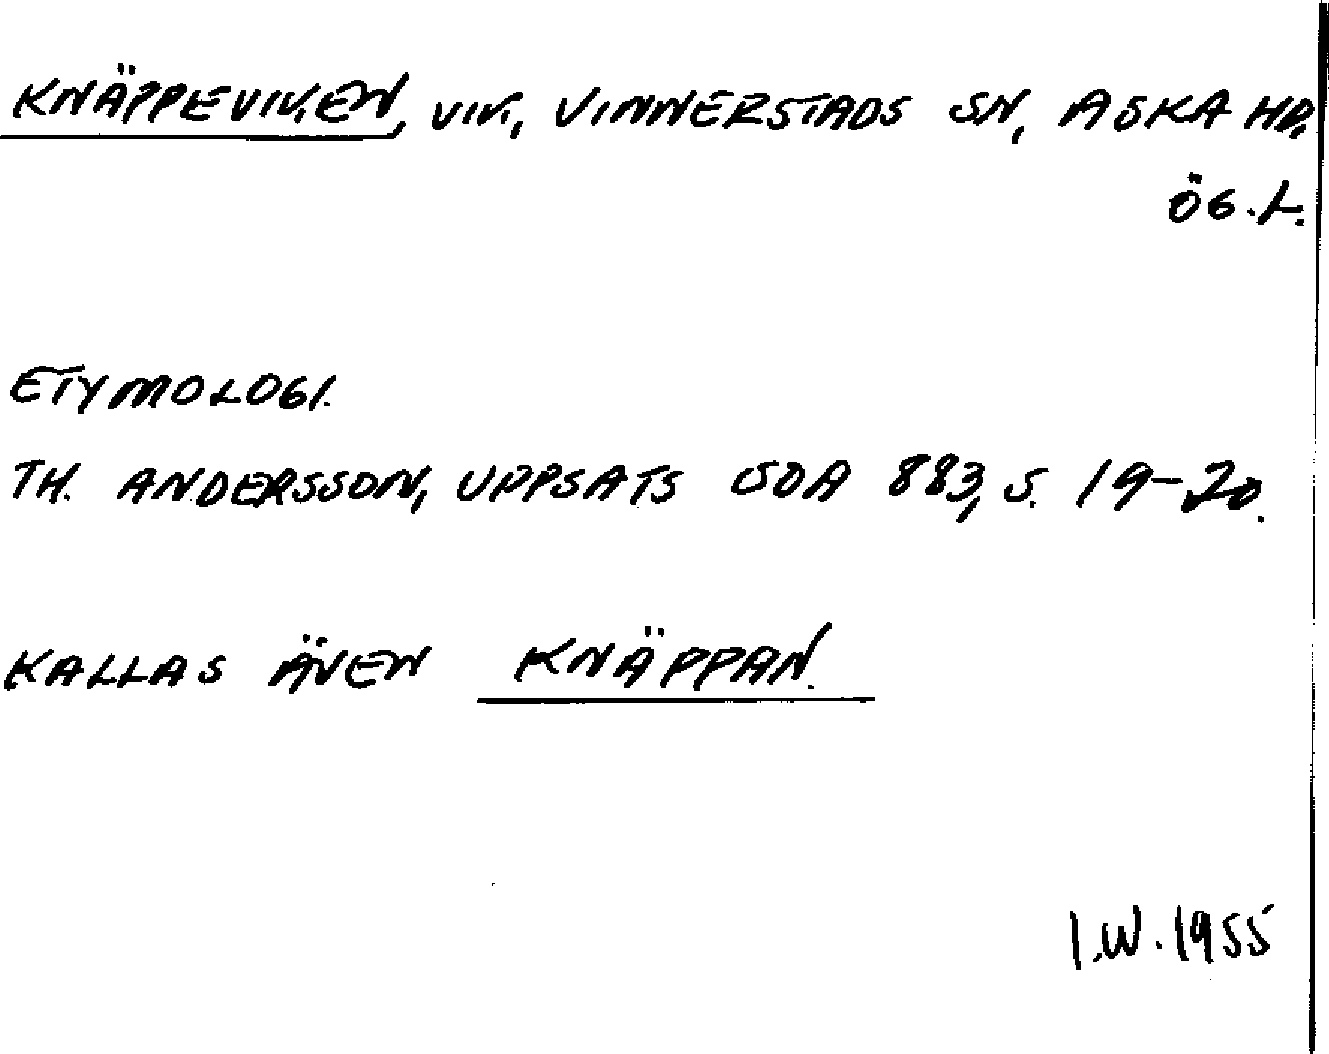 KNÄPPEVIKEN, VIK, VINNERSTADS SN, ASKA HD,
ÖG.L.
ETYMOLOGI.
TH. ANDERSSON, UPPSATS SOA 883, S. 19-20.
KALLAS ÄVEN KNÄPPAN.
I.W. 1955